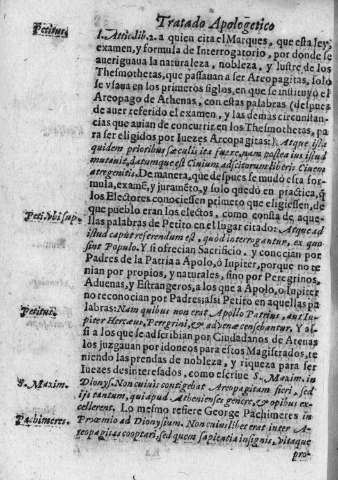 Tratado Apologetico
Petitus.
l. Attic.lib.2. a quien cita el Marques, que esta ley,
examen, y formula de Interrogatorio, por donde se
aueriguaua la naturaleza, nobleza, y lustre de los
Thesmothetas, que passauan a ser Areopagitas, solo
se vsaua en los primeros siglos, en que se instituyò el
Areopago de Athenas, con estas palabras (despues
de auer referido el examen, y las demàs circunstan-
cias que auian de concurrir en los Thesmothetas, pa
ra ser eligidos por Iuezes Areopagitas:) Atque ista
quidem prioribus sæculis ita fuere, nam postea ius istud
mutauit, datumque est Ciuium adscitorum liberis Ciuem
atregenitis. De manera, que despues se mudò esta for-
mula, examẽ, y juramẽto, y solo quedò en practica, q̃
los Electores conociessen primero que eligiessen, de
que pueblo eran los electos, como consta de aque-
Peti.vbi sup.
llas palabras de Petito en el lugar citado: Atque ad
istud caput referendum est, quòd interrogantur, ex quo
sint Populo. Y si ofrecian Sacrificio, y conocian por
Padres de la Patria a Apolo, ò Iupiter, porque no te
nian por propios, y naturales, sino por Peregrinos,
Aduenas, y Estrangeros, a los que a Apolo, ò Iupiter
no reconocian por Padres; assi Petito en aquellas pa
Petitus.
labras: Nam quibus non erat Apollo Patrius, aut Iu-
piter Herceus, Peregrini, & aduenæ censebantur. Y assi
si a los que se adscribian por Ciudadanos de Atenas
los juzgauan por idoneos para estos Magistrados, te
niendo las prendas de nobleza, y riqueza para ser
Iuezes desinteresados, como escriue S. Maxim. in
S. Maxim.
Dionys. Non cuiuis contigebat Areopagitam fieri, sed
ijs tantum, qui apud Athenienses genere, & opibus ex-
cellerent. Lo mesmo refiere George Pachimeres in
Pachimeres.
Præmio ad Dionysium. Non cuiuis liber erat inter A-
reopagitas cooptari, sed quem sapientia insignis, vitaque
pro-